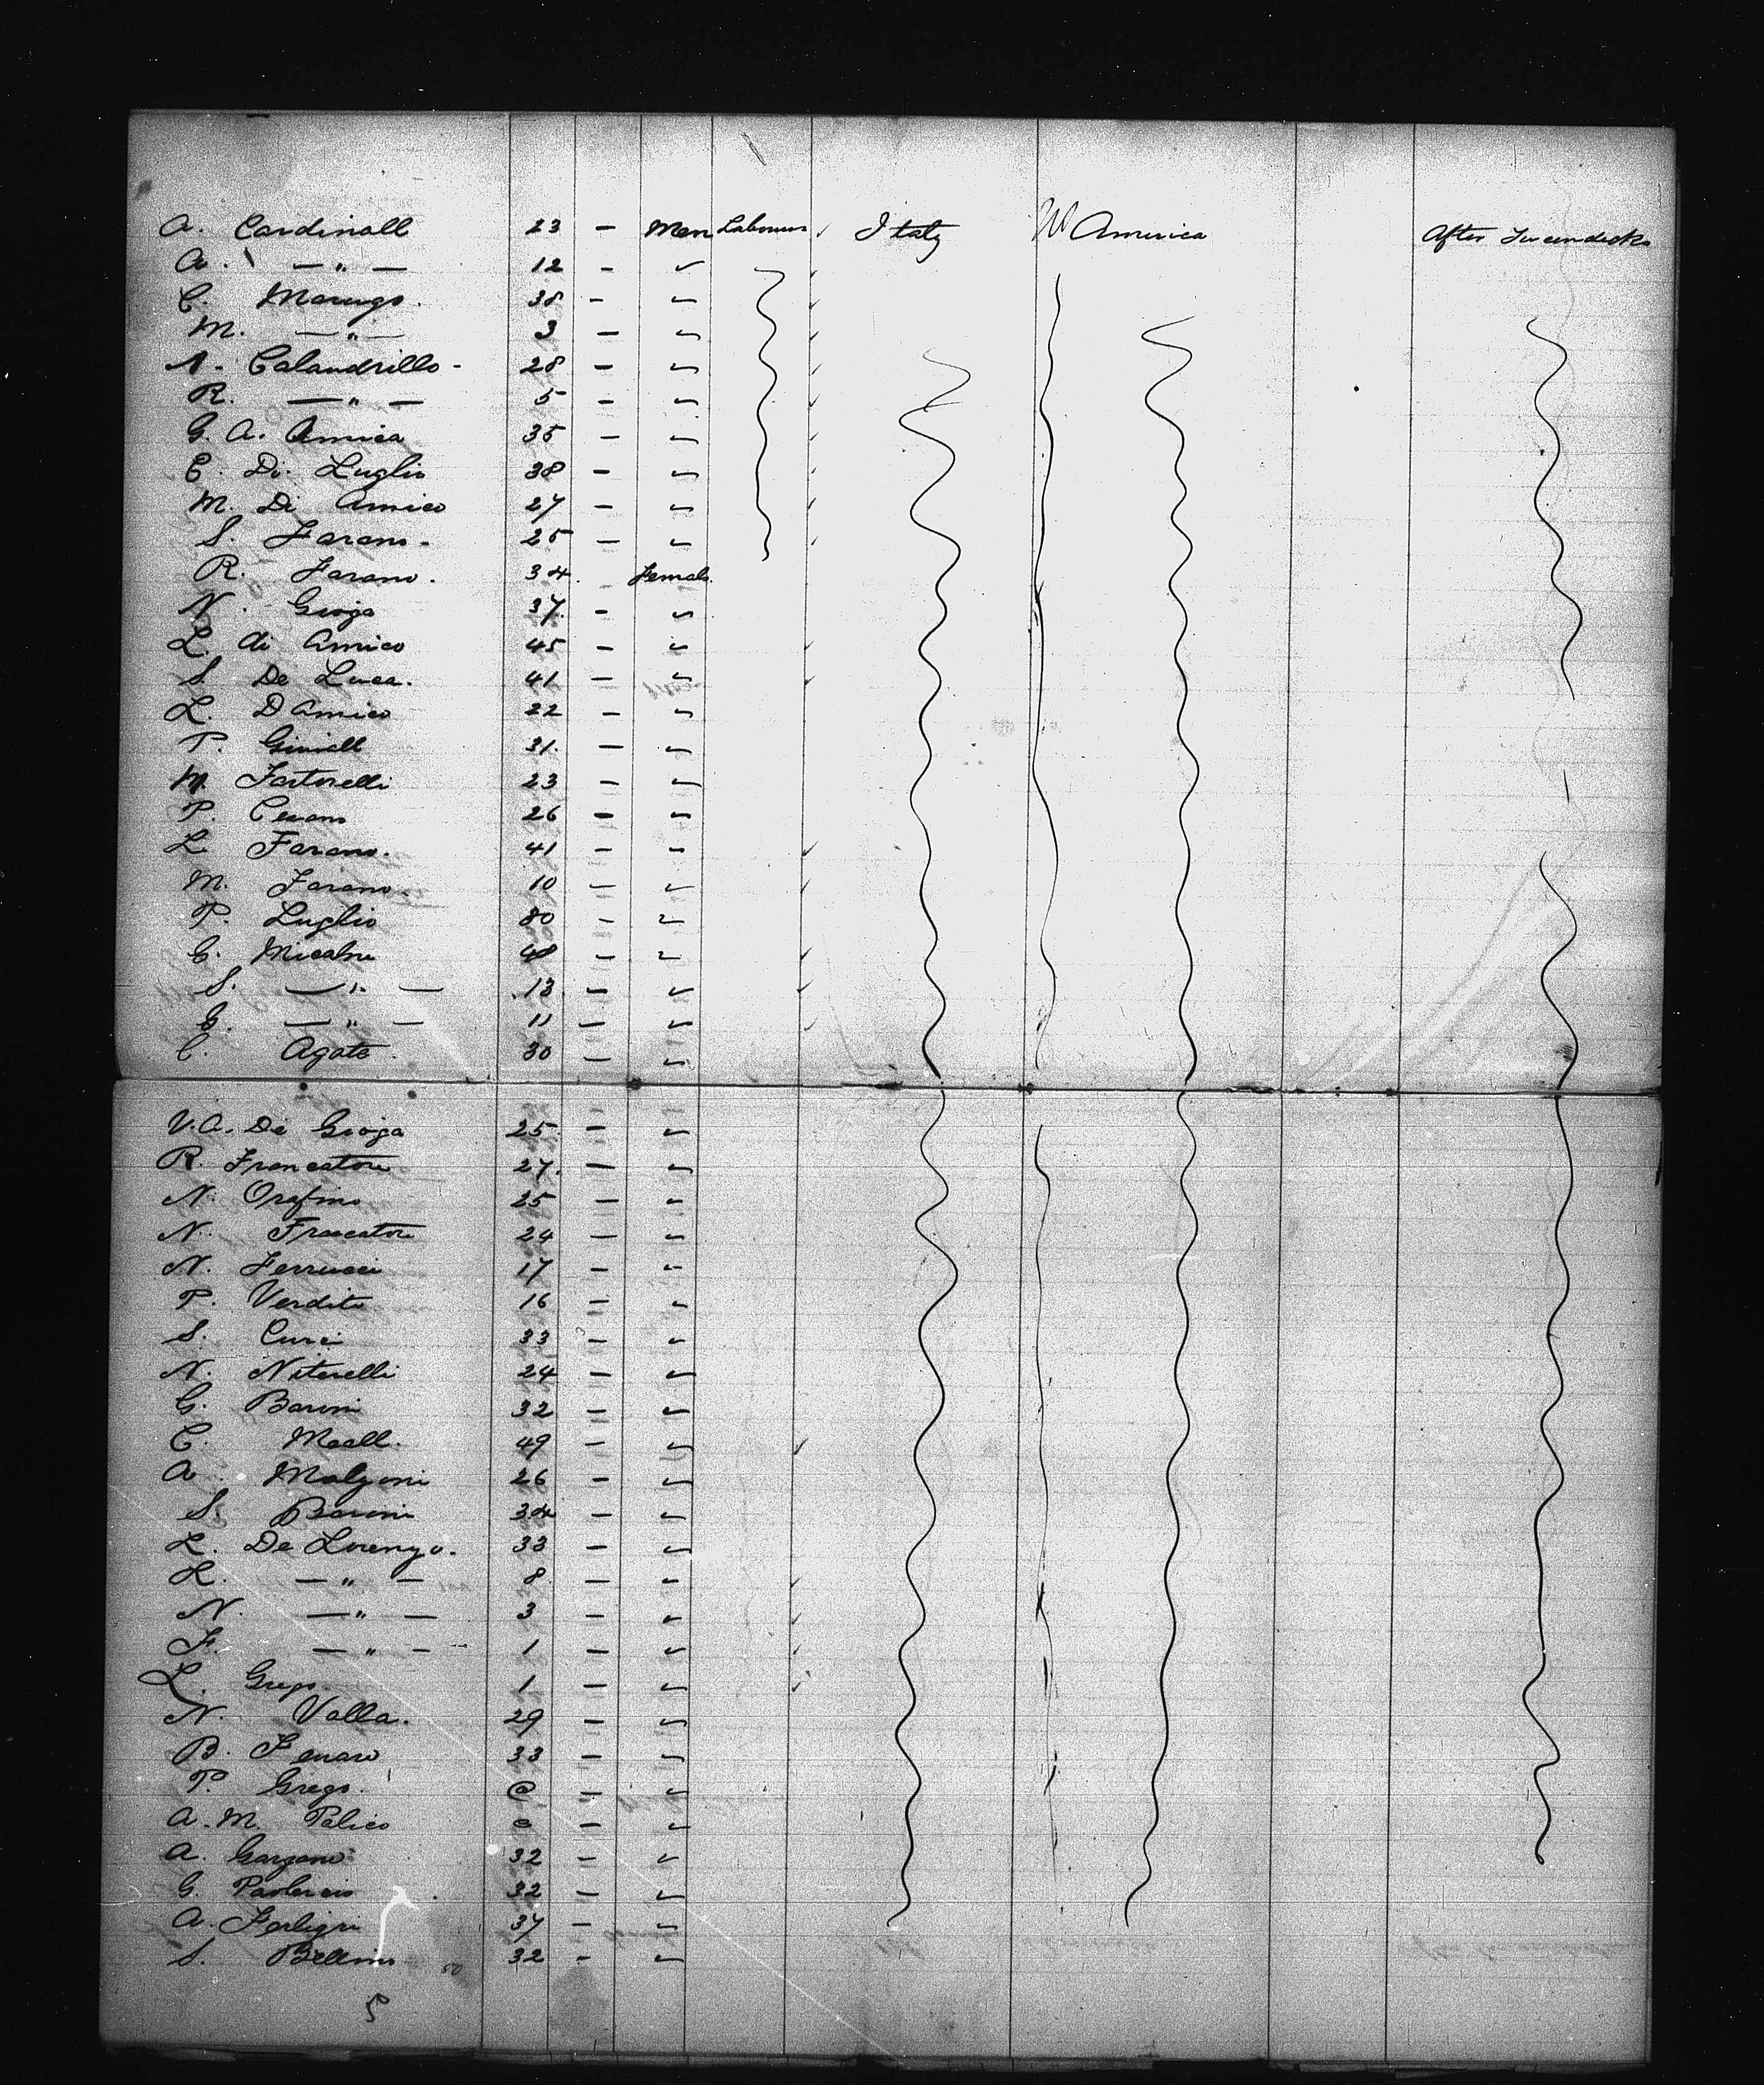 A. Cardinall 23 — Men Labourer Italy W America After Tweendecks
A. — " — 12 - "
C. Marugo. 38 - "
M. — " — 3 — "
N. Calandrillo - 28 — "
R. — " — 5 — "
G. A. Amica 35 — "
C. Di Luglio 38 — "
M. Di Amico 27 — "
S. Farano - 25 — "
R. Farano. 34. - Female
N. Gioja 37. - "
L. di Amico 45 — "
S. De Luca. 41 — "
L. D Amico 22 — "
P. 31. — "
M. Sartorelli 23 — "
P. 26 — "
L. Farano. 41 — "
M. Farano. 10 — "
P. Luglio 80 — "
G. 48 — "
S. — " — 13 — "
G. — " — 11 — "
C. Agate. 30 — "
V. A. De Gioja 25 — "
R. Francatore 27. — "
N. Orefino 25 — "
N. Fraecatore 24 — "
N. Ferrucci 17 — "
P. Verdite 16 — "
S. Curci 33 — "
N. Niterelli 24 — "
G. Baroni 32 — "
C. Meall. 49 — "
A. Malzoni 26 — "
S. Baroni 34 — "
L. De Lorenzo. 33 — "
L. — " — 8 — "
N. — " — 3 — "
F. — " — 1 — "
L. Grego. 1 — "
N. Valla. 29 — "
B. 33 — "
P. Grego. — "
A. M. Palico — "
A. Gargano 32 — "
G. 32 — "
A. 37 — "
S. Bellino 32 - "
50
5